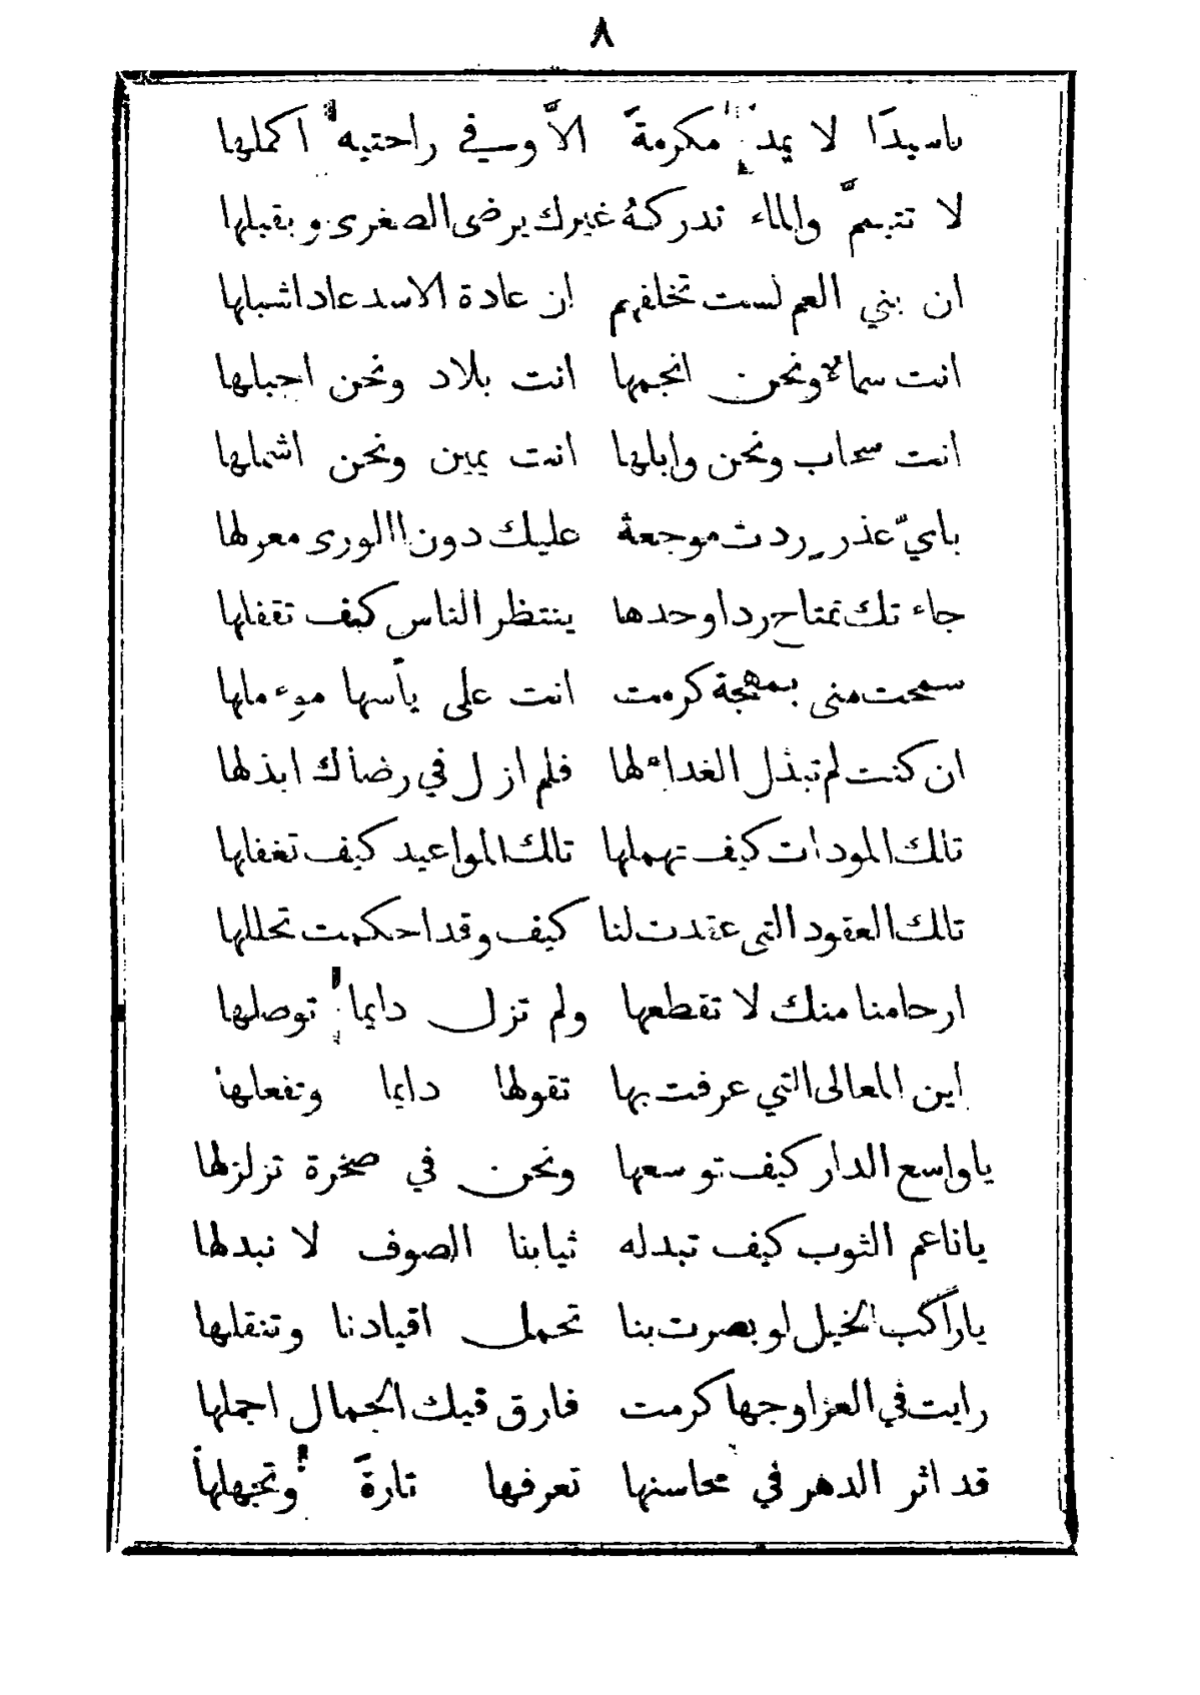 ٨
ياسيدًا لا يمد مكرمةً الاَّ وسيفي راحتيه اكملها
لا تتيممَّ والماء تدركهُ غيرك يرضى الصغرى ويقبلها
ان بني العم لست تخلفهم ان عادة الاسد عاد اشبالها
انت سماء ونحن انجمها انت بلاد ونحن اجبلها
انت سحاب ونحن وابلها انت يمين ونحن اشملها
بايّ عذر رددت موجعة عليك دون الورى معولها
جاء تك تمتاح رداوحدها ينتظر الناس كيف تقفلها
سمحت منى بمهجة كرمت انت على يأسها موء ملها
ان كنت لم تبذل الفداء لها فلم ازل في رضاك ابذلها
تلك المودات كيف تهملها تلك المواعيد كيف تغفلها
تلك العقود التي عقدت لنا كيف وقد احكمت تحللها
ارحامنا منك لا تقطعها ولم تزل دايما توصلها
اين المعالى التي عرفت بها تقولها دايما وتفعلها
ياواسع الدار كيف توسعها ونحن في صخرة تزلزلها
ياناعم الثوب كيف تبدله ثيابنا الصوف لا نبدلها
ياراكب الخيل لو بصرت بنا تحمل اقيادنا وتنقلها
رايت في العزاوجها كرمت فارق فيك الجمال اجملها
قد اثر الدهر في محاسنها تعرفها تارةً وتجهلها